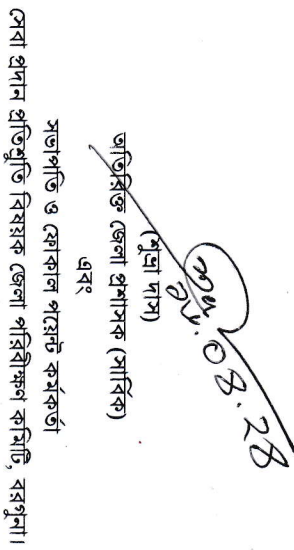 .০৪.২৪
(শুভ্রা দাস)
অতিরিক্ত জেলা প্রশাসক (সার্বিক)
এবং
সভাপতি ও ফোকাল পয়েন্ট কর্মকর্তা
সেবা প্রদান প্রতিশ্রুতি বিষয়ক জেলা পরিবীক্ষণ কমিটি, বরগুনা।